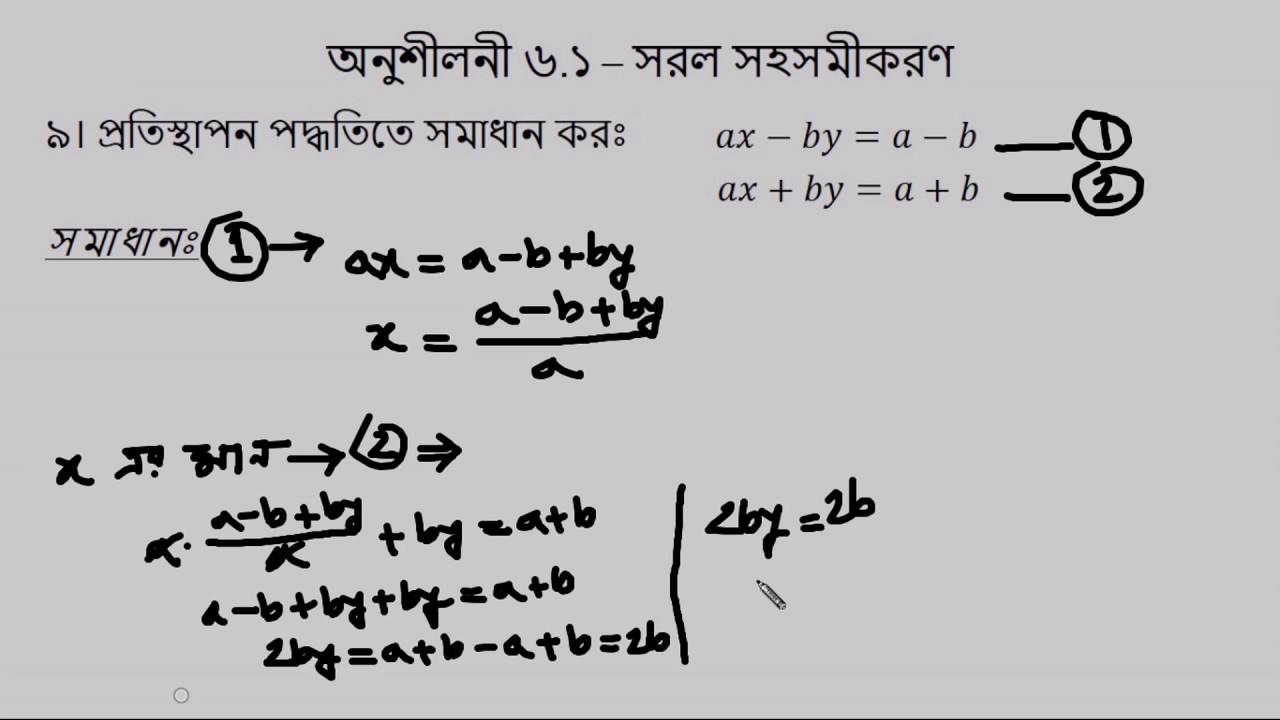 অনুশীলনী ৬.১ – সরল সহসমীকরণ
৯। প্রতিস্থাপন পদ্ধতিতে সমাধান করঃ ax − by = a − b 1
ax + by = a + b 2
সমাধানঃ 1 → ax = a-b+by
x = a-b+by / a
x এর মান → 2 ⇒
a. a-b+by / a + by = a+b
a-b+by+by = a+b
2by = a+b-a+b = 2b
2by = 2b